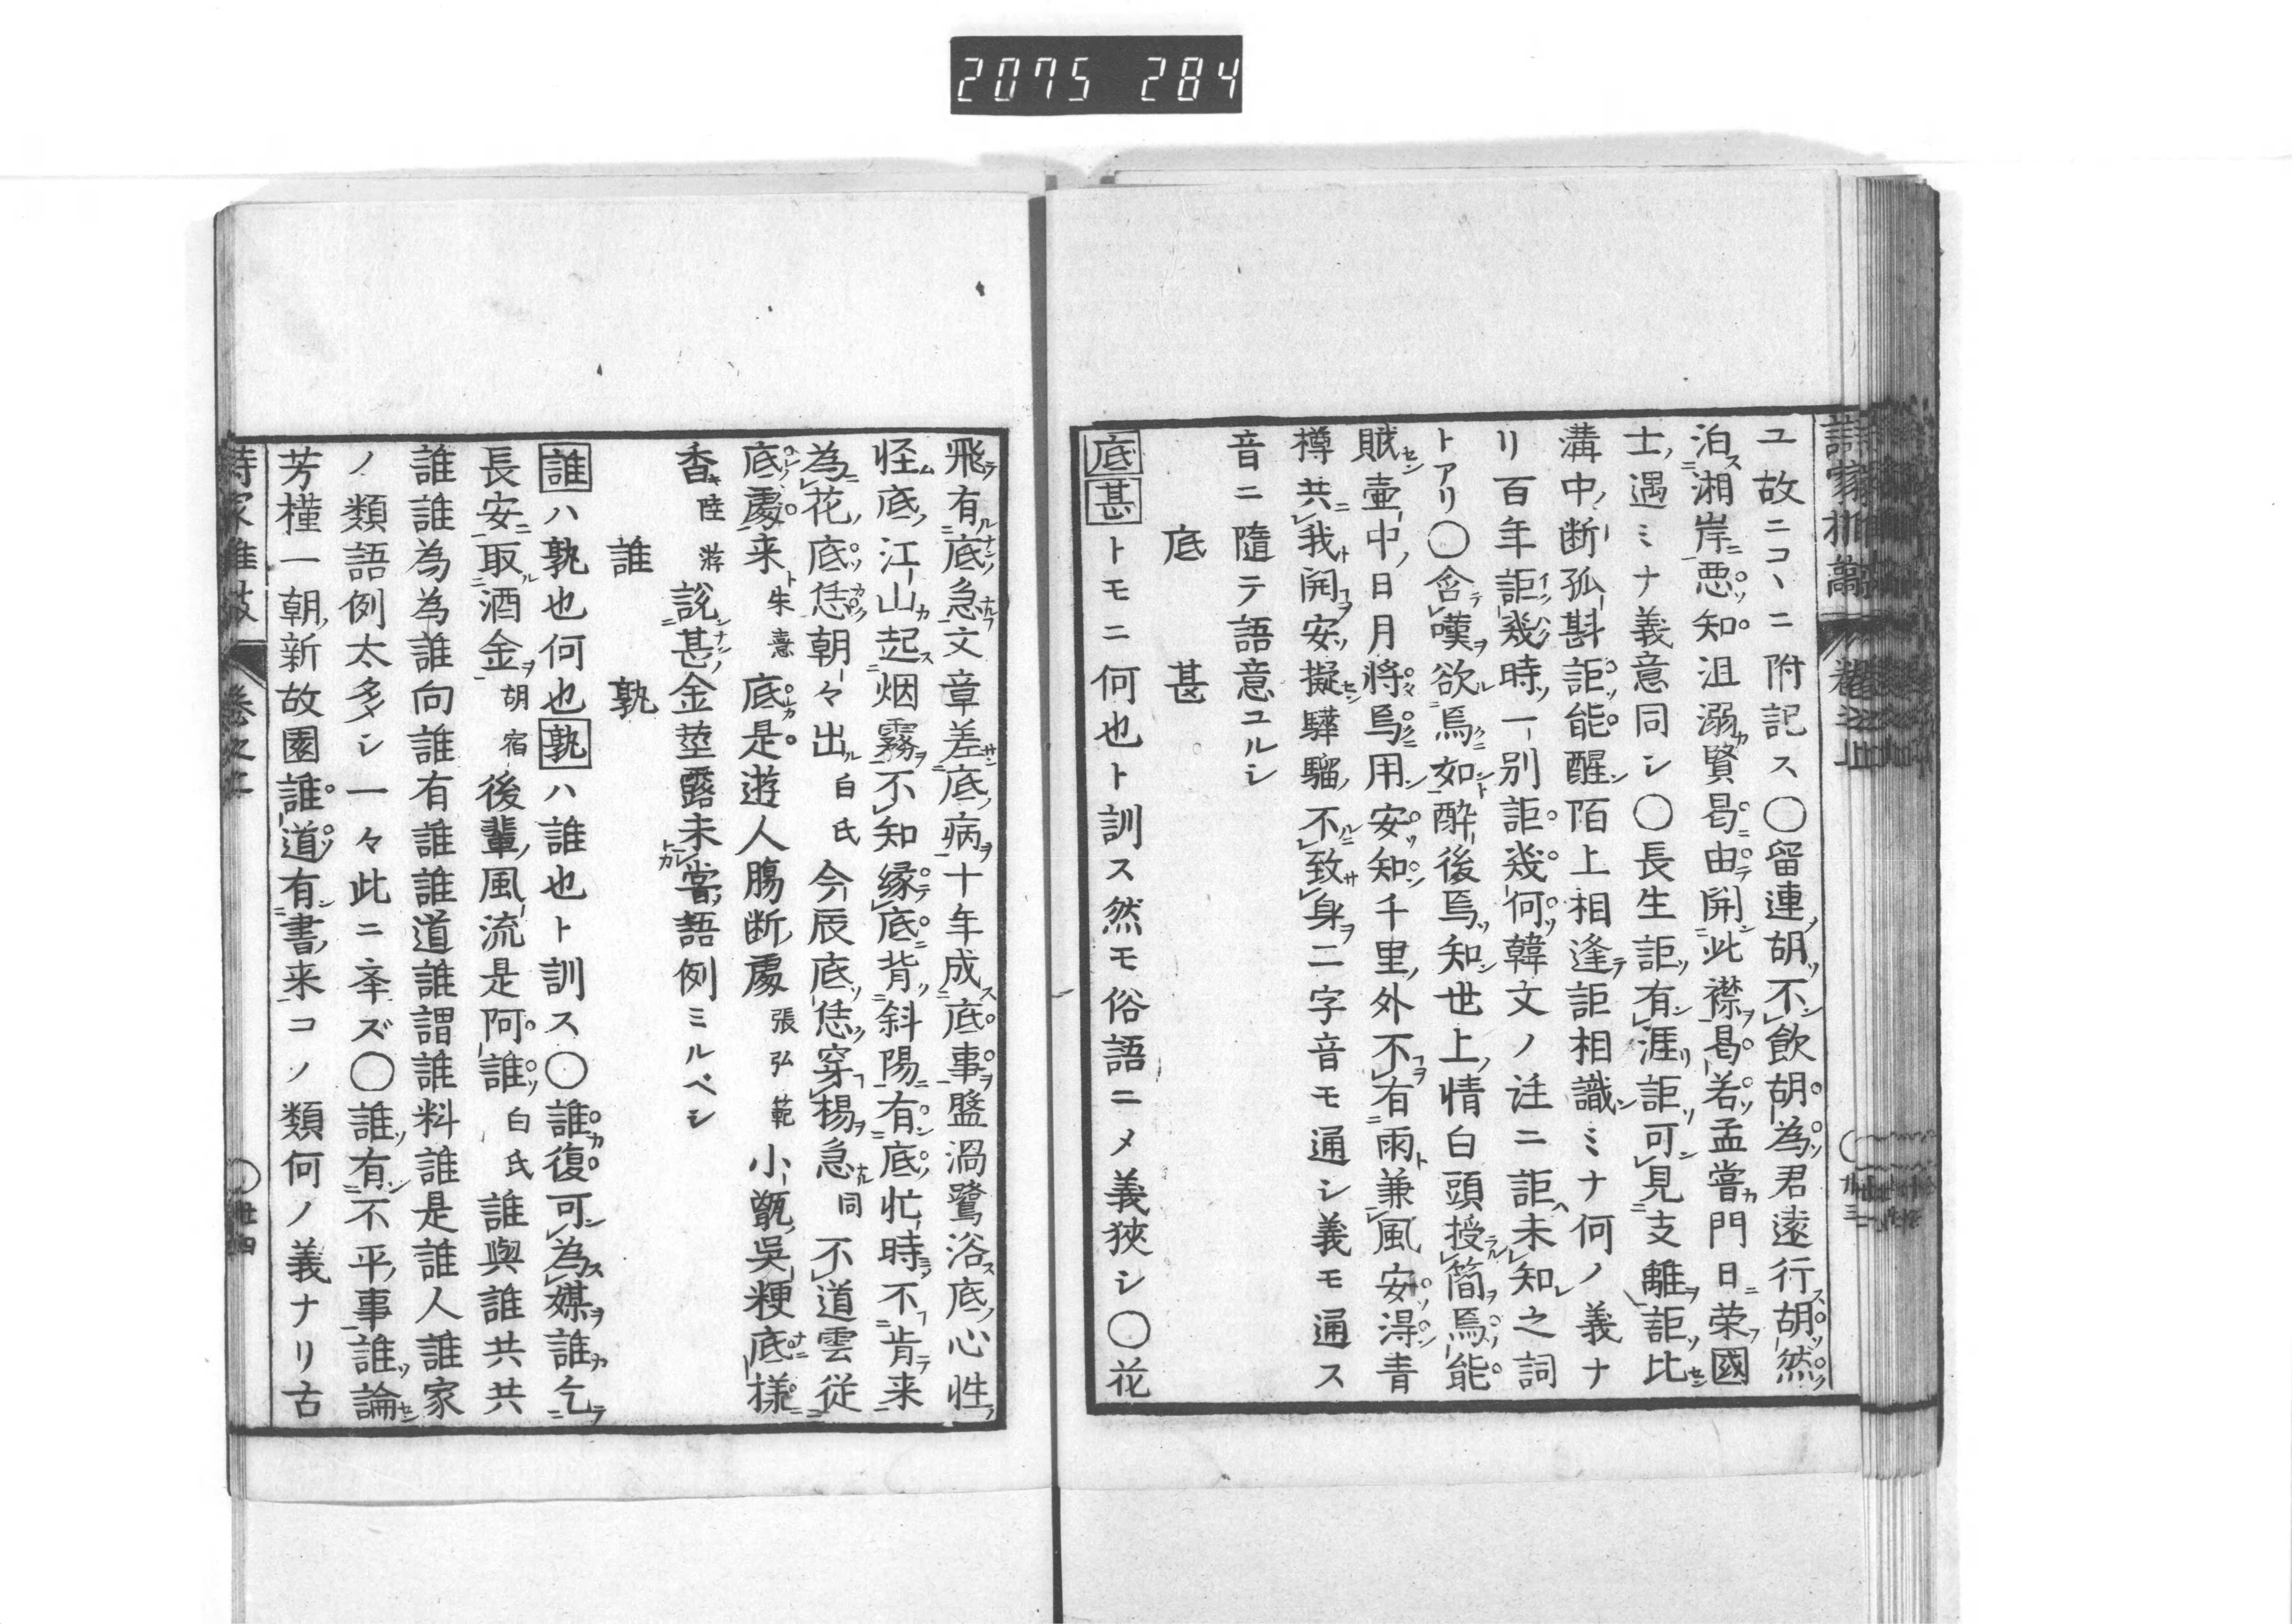 2075 284
ユ故ニコヽニ附記ス〇留連胡不飲胡為君遠行胡然
泊湘岸悪知沮溺賢曷由開此襟曷若孟嘗門日荣國
士遇ミナ義意同シ〇長生詎有涯詎可見支離詎比
溝中断孤斟詎能醒陌上相逢詎相識ミナ何ノ義ナ
リ百年詎幾時一別詎幾何韓文ノ註ニ詎未知之詞
トアリ〇含嘆欲焉如酔後焉知世上情白頭授簡焉能
賦壷中日月將焉用安知千里外不有雨兼風安得青
樽共我開安擬驊騮不致身二字音モ通シ義モ通ス
音ニ隨テ語意ユルシ
底　甚
底甚トモニ何也ト訓ス然モ俗語ニメ義狹シ〇花
飛有底急文章差底病十年成底事盤渦鷺浴底心性
怪底江山起烟霧不知縁底背斜陽有底忙時不肯来
為花底恁朝々出白氏今辰底恁穿楊急同不道雲従
底處来朱熹底是遊人腸断處張弘範小甑吳粳底様
香陸游説甚金莖露未嘗語例ミルベシ
誰　孰
誰ハ孰也何也孰ハ誰也ト訓ス〇誰復可為媒誰乞
長安取酒金胡宿後輩風流是阿誰白氏誰與誰共共
誰誰為為誰向誰有誰誰道誰謂誰料誰是誰人誰家
ノ類語例太多シ一々此ニ率ズ〇誰有不平事誰論
芳槿一朝新故園誰道有書来コノ類何ノ義ナリ古
卷之上